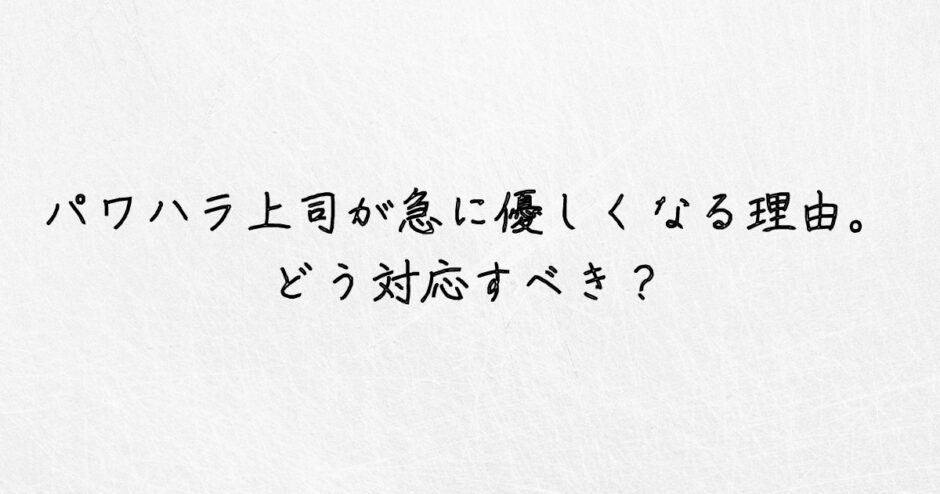 パワハラ上司が急に優しくなる理由。
どう対応すべき？